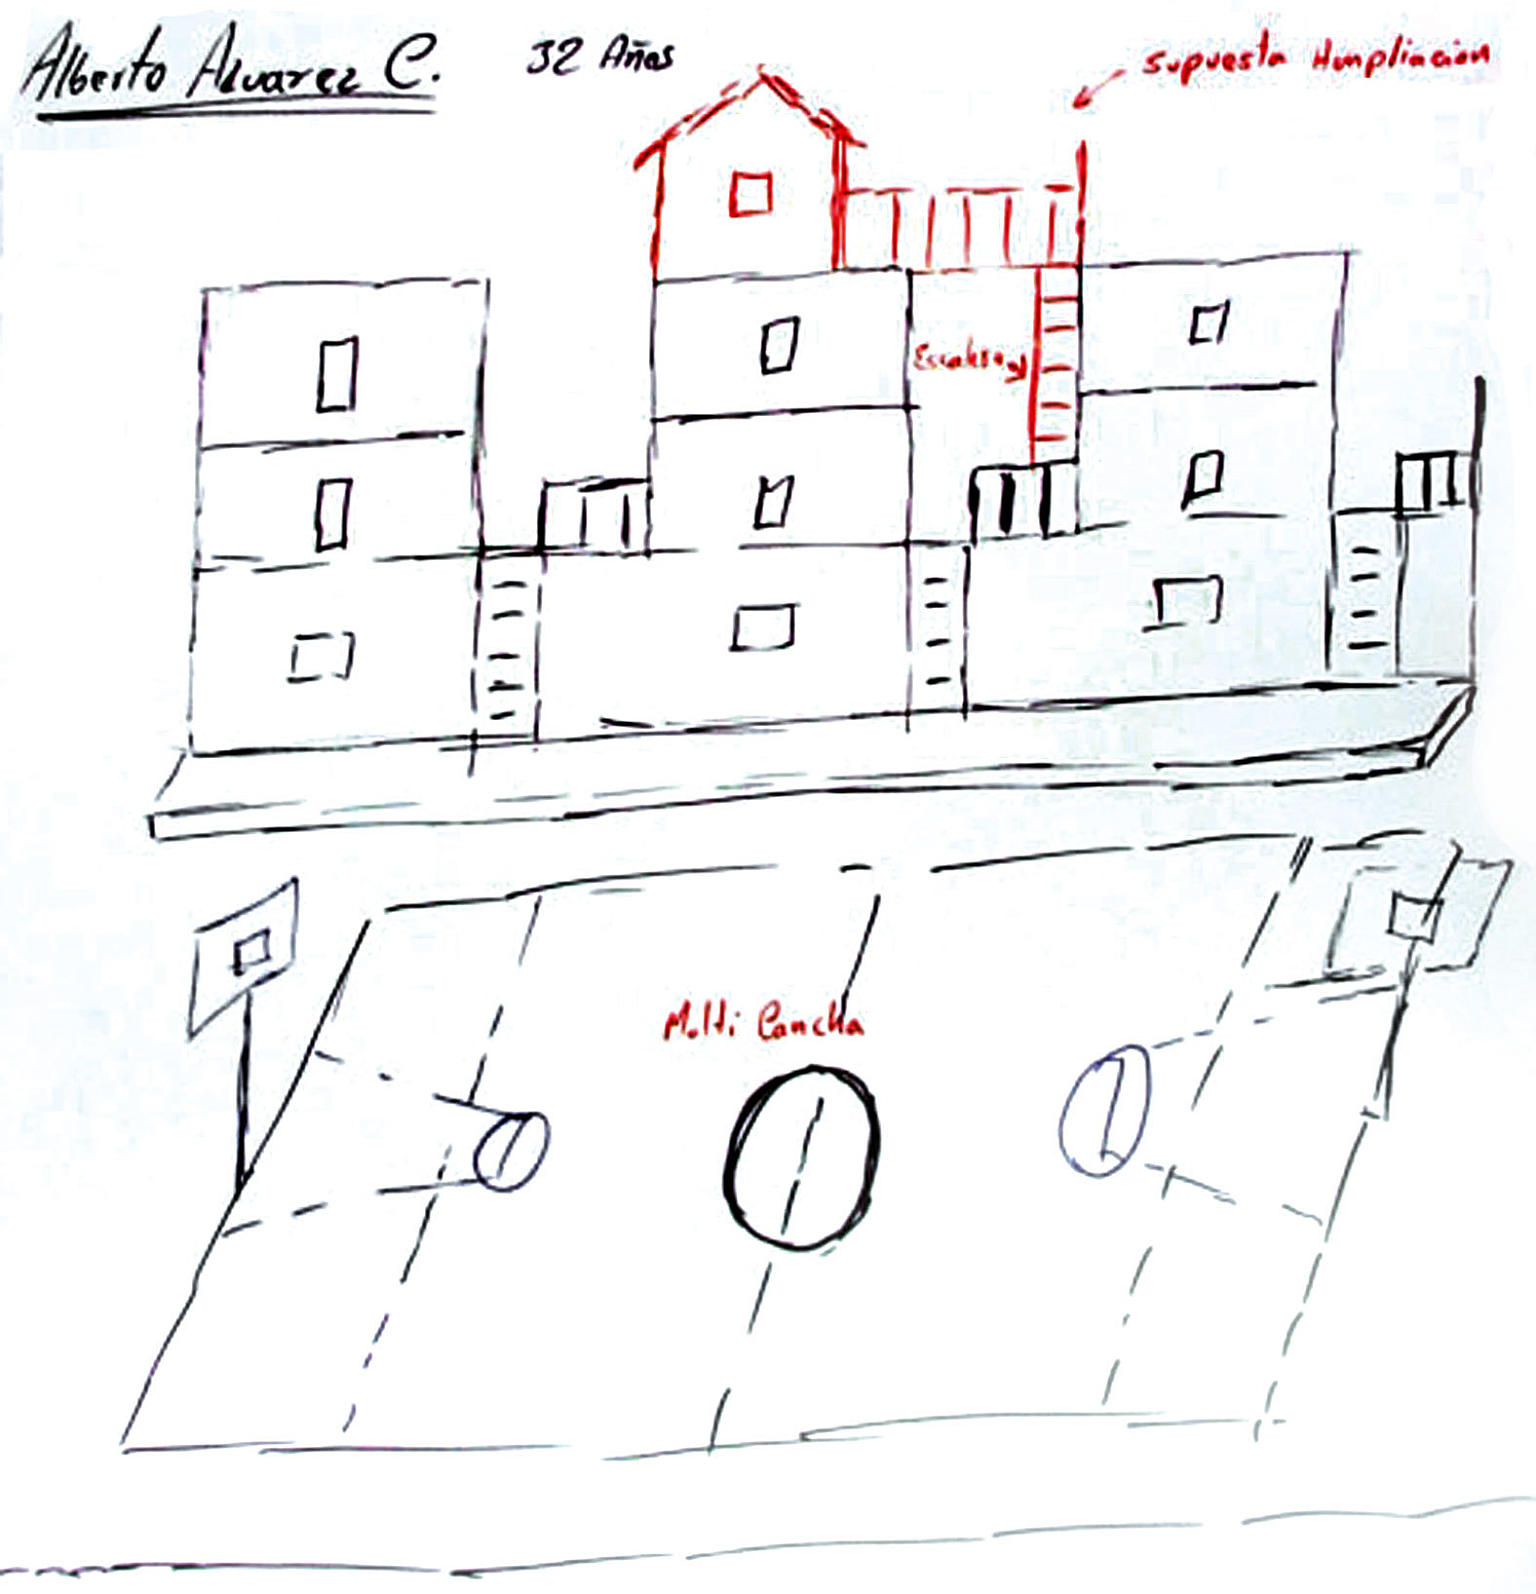 Alberto Alvarez C.
32 Años
supuesta Ampliacion
Escalera
Multi Cancha